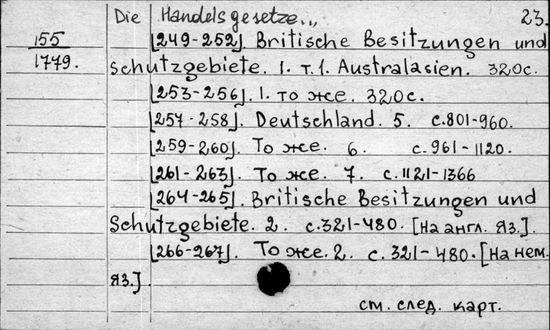 Die Handelsgesetze... 23.
155
1779.
[249-252]. Britische Besitzungen und
Schutzgebiete. 1. т.1. Australasien. 320с.
[253-256]. 1. то же. 320с.
[257-258]. Deutschland. 5. с.801-960.
[259-260]. То же. 6. с.961-1120.
[261-263]. То же. 7. с.1121-1366
[264-265]. Britische Besitzungen und
Schutzgebiete. 2. с.321-480. [На англ. яз.].
[266-267]. То же. 2. с.321-480. [На нем.
яз.].
см. след. карт.